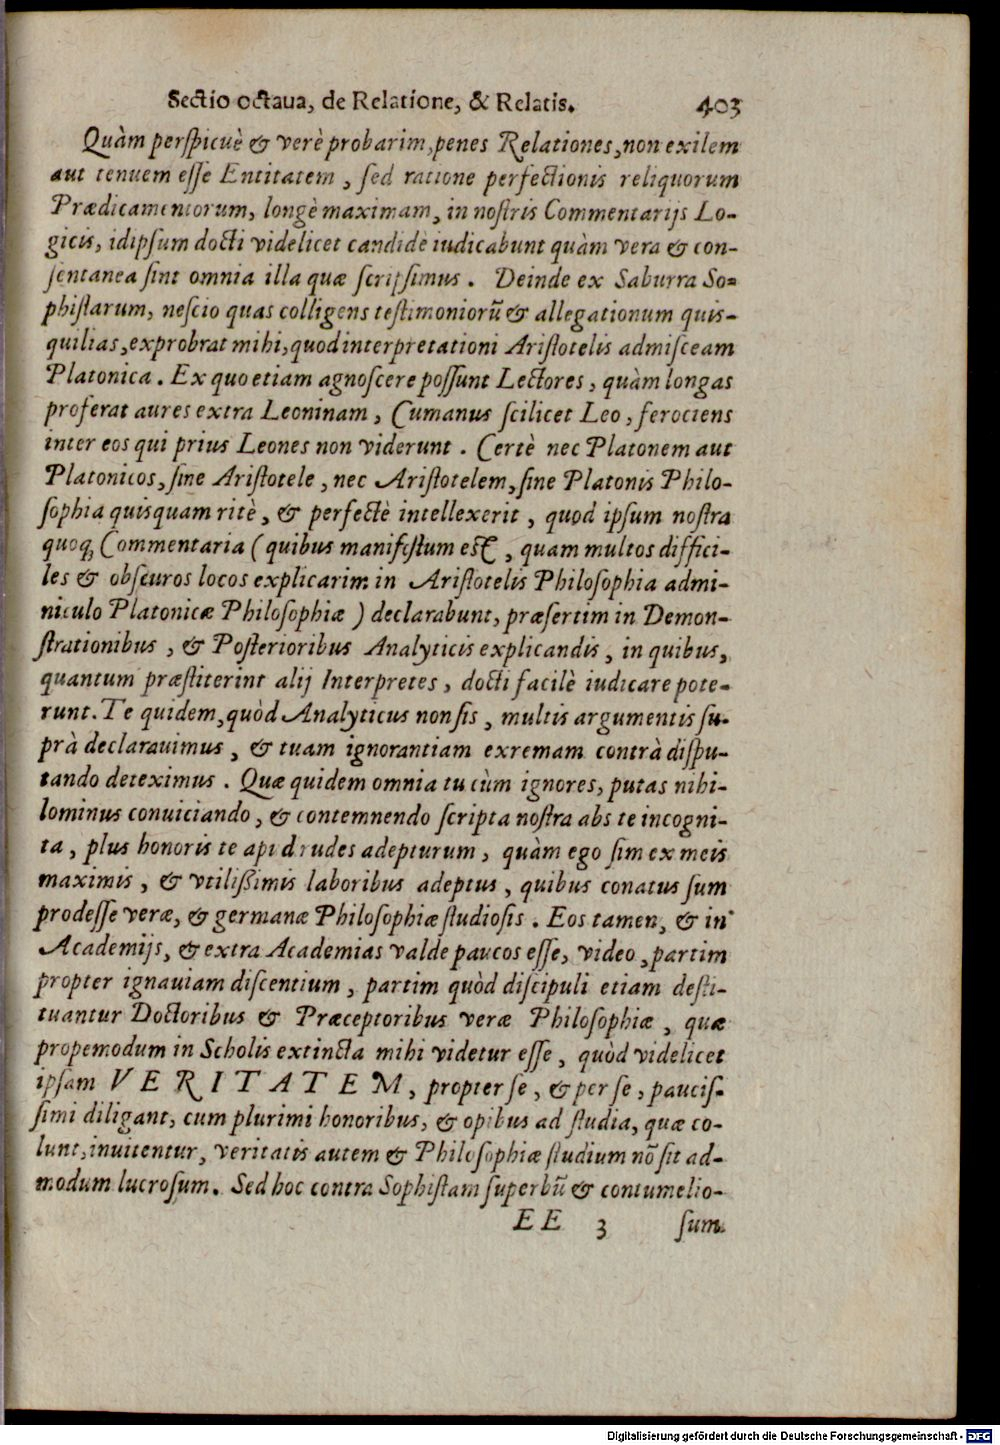 Sectio octaua, de Relatione, & Relatis. 403
Quàm perspicuè & verè probarim, penes Relationes, non exilem
aut tenuem esse Entitatem, sed ratione perfectionis reliquorum
Prædicamentorum, longè maximam, in nostris Commentarijs Lo-
gicis, idipsum docti videlicet candidè iudicabunt quàm vera & con-
sentanea sint omnia illa quæ scripsimus. Deinde ex Saburra So-
phistarum, nescio quas colligens testimoniorū & allegationum quis-
quilias, exprobrat mihi, quod interpretationi Aristotelis admisceam
Platonica. Ex quo etiam agnoscere possunt Lectores, quàm longas
proferat aures extra Leoninam, Cumanus scilicet Leo, ferociens
inter eos qui prius Leones non viderunt. Certè nec Platonem aut
Platonicos, sine Aristotele, nec Aristotelem, sine Platonis Philo-
sophia quisquam ritè, & perfectè intellexerit, quod ipsum nostra
quoq; Commentaria (quibus manifestum est, quam multos diffici-
les & obscuros locos explicarim in Aristotelis Philosophia admi-
niculo Platonicæ Philosophiæ) declarabunt, præsertim in Demon-
strationibus, & Posterioribus Analyticis explicandis, in quibus,
quantum præstiterint alij Interpretes, docti facilè iudicare pote-
runt. Te quidem, quòd Analyticus non sis, multis argumentis su-
prà declarauimus, & tuam ignorantiam exremam contrà dispu-
tando deteximus. Quæ quidem omnia tu cùm ignores, putas nihi-
lominus conuiciando, & contemnendo scripta nostra abs te incogni-
ta, plus honoris te apud rudes adepturum, quàm ego sim ex meis
maximis, & vtilißimis laboribus adeptus, quibus conatus sum
prodesse veræ, & germanæ Philosophiæ studiosis. Eos tamen, & in
Academijs, & extra Academias valde paucos esse, video, partim
propter ignauiam discentium, partim quòd discipuli etiam desti-
tuantur Doctoribus & Præceptoribus veræ Philosophiæ, quæ
propemodum in Scholis extincta mihi videtur esse, quòd videlicet
ipsam VERITATEM, propter se, & per se, paucis-
simi diligant, cum plurimi honoribus, & opibus ad studia, quæ co-
lunt, inuitentur, veritatis autem & Philosophiæ studium nō sit ad-
modum lucrosum. Sed hoc contra Sophistam superbū & contumelio-
EE 3 sum.
Digitalisierung gefördert durch die Deutsche Forschungsgemeinschaft - DFG